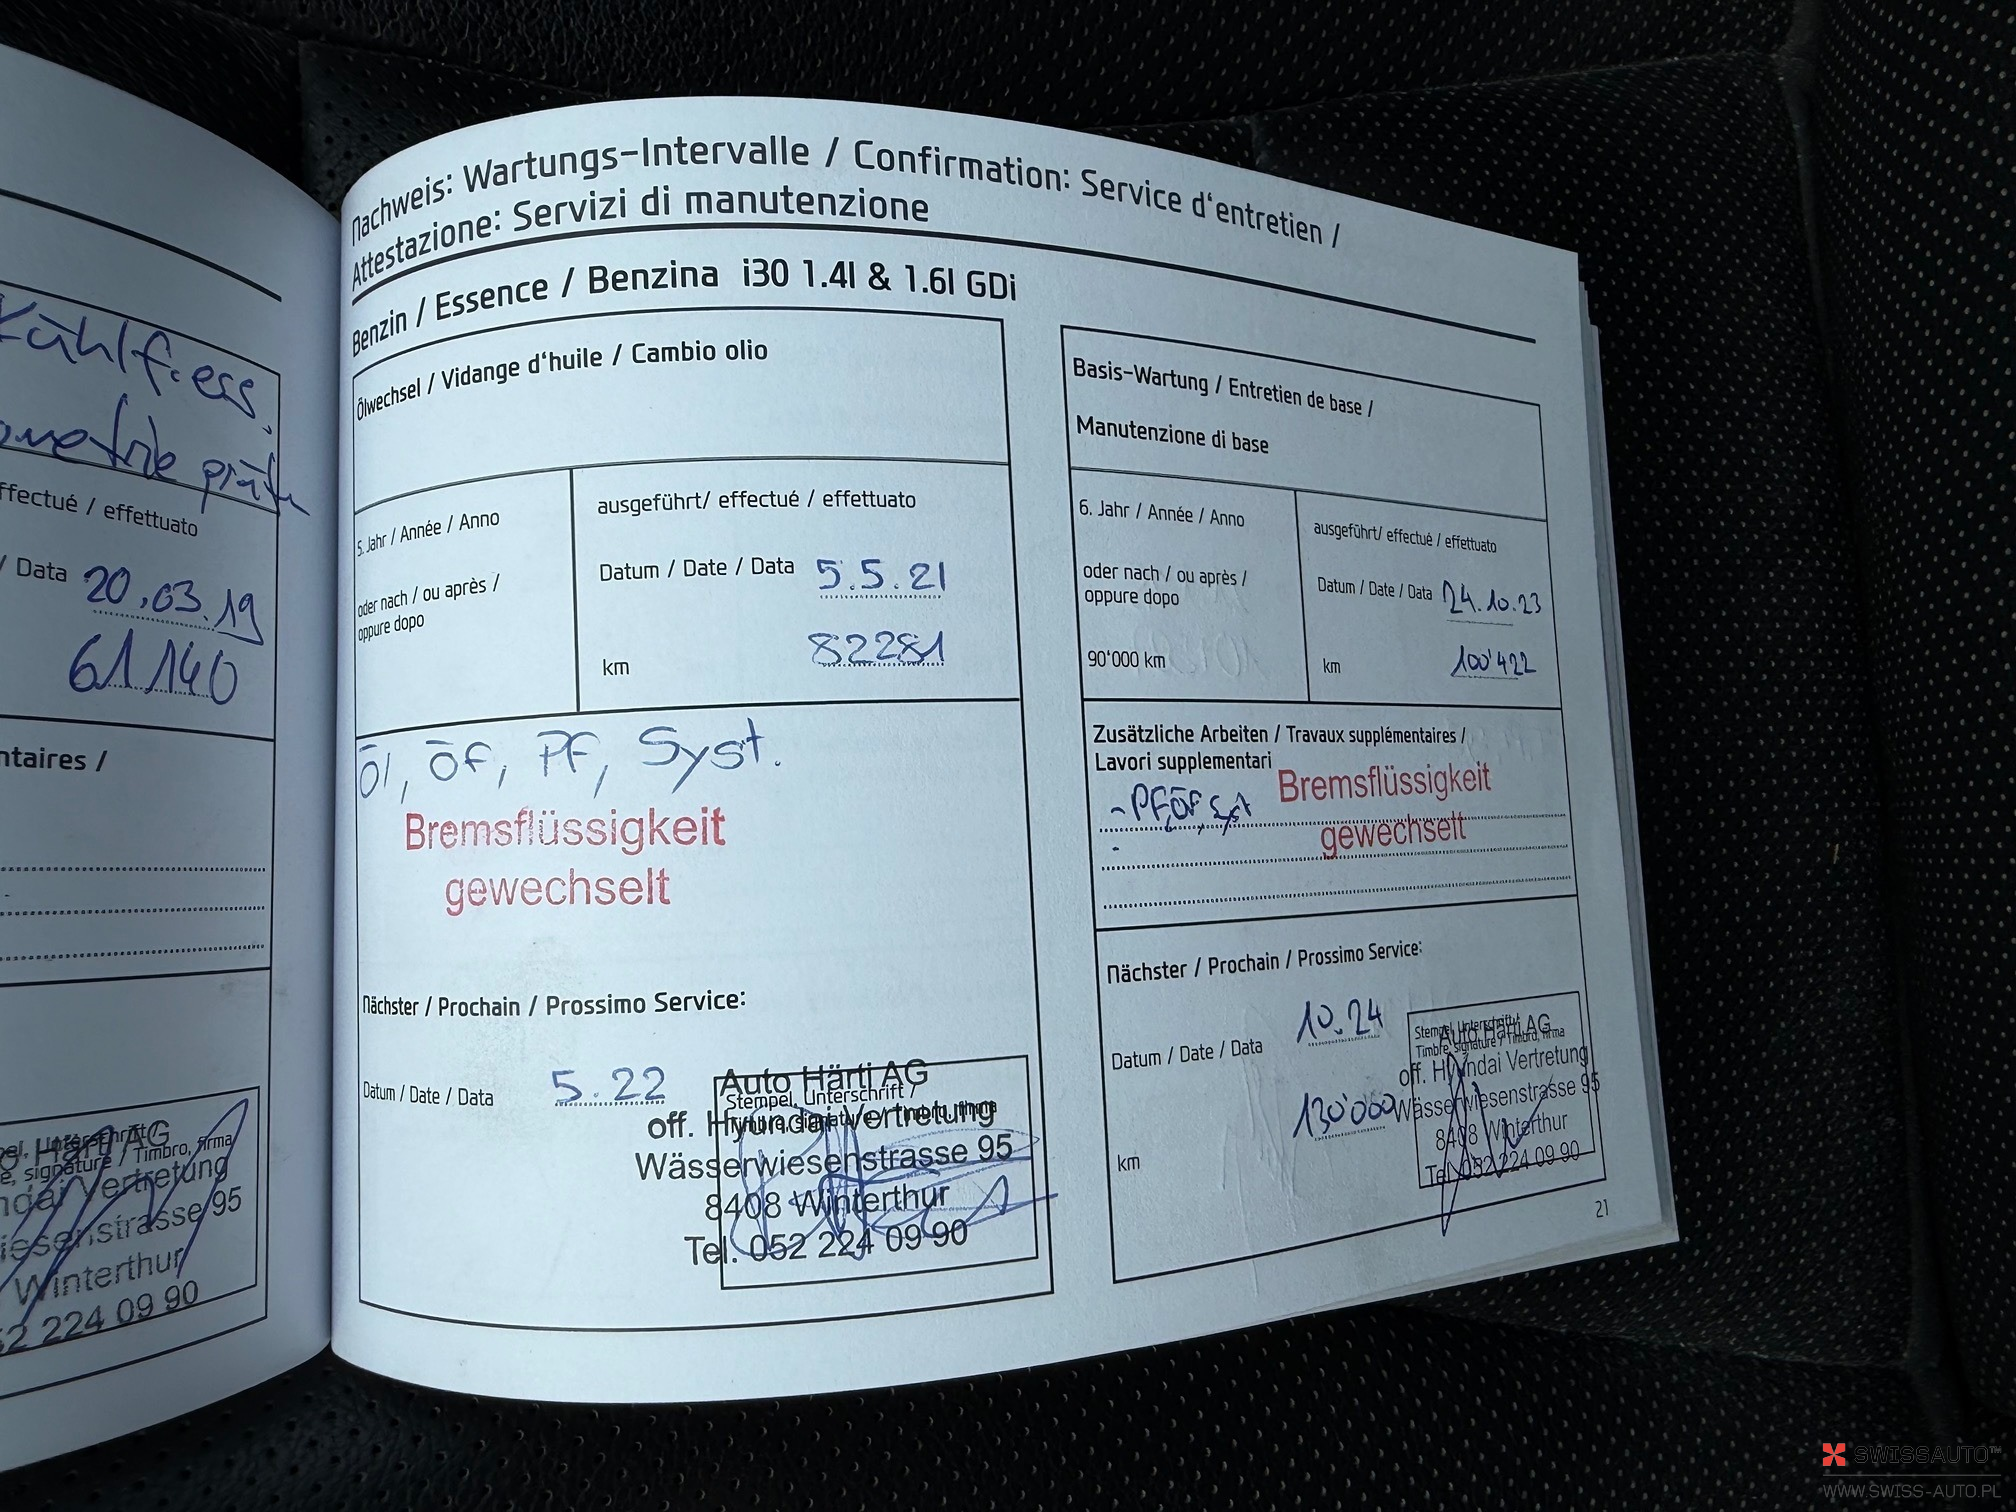 Kühlfl:ess.
ometrie prüfen
ffectué / effettuato
/ Data 20.03.19
61140
ntaires /
Stempel, Unterschrift /
Timbre, signature / Timbro, firma
o Härti AG
ndai Vertretung
iesenstrasse 95
Winterthur
52 224 09 90
Nachweis: Wartungs-Intervalle / Confirmation: Service d'entretien /
Attestazione: Servizi di manutenzione
Benzin / Essence / Benzina i30 1.4l & 1.6l GDi
Ölwechsel / Vidange d'huile / Cambio olio
5. Jahr / Année / Anno
oder nach / ou après /
oppure dopo
ausgeführt/ effectué / effettuato
Datum / Date / Data 5.5.21
km 82281
Öl, ÖF, PF, Syst.
Bremsflüssigkeit
gewechselt
Nächster / Prochain / Prossimo Service:
Datum / Date / Data 5.22
Stempel, Unterschrift /
Timbre, signature / Timbro, firma
Auto Härti AG
off. Hyundai Vertretung
Wässerwiesenstrasse 95
8408 Winterthur
Tel. 052 224 09 90
Basis-Wartung / Entretien de base /
Manutenzione di base
6. Jahr / Année / Anno
oder nach / ou après /
oppure dopo
90'000 km
ausgeführt/ effectué / effettuato
Datum / Date / Data 24.10.23
km 100'422
Zusätzliche Arbeiten / Travaux supplémentaires /
Lavori supplementari
- PF, ÖF, Syst
Bremsflüssigkeit
gewechselt
Nächster / Prochain / Prossimo Service:
Datum / Date / Data 10.24
km 130'000
Stempel, Unterschrift /
Timbre, signature / Timbro, firma
Auto Härti AG
off. Hyundai Vertretung
Wässerwiesenstrasse 95
8408 Winterthur
Tel. 052 224 09 90
21
SWISSAUTO™
WWW.SWISS-AUTO.PL